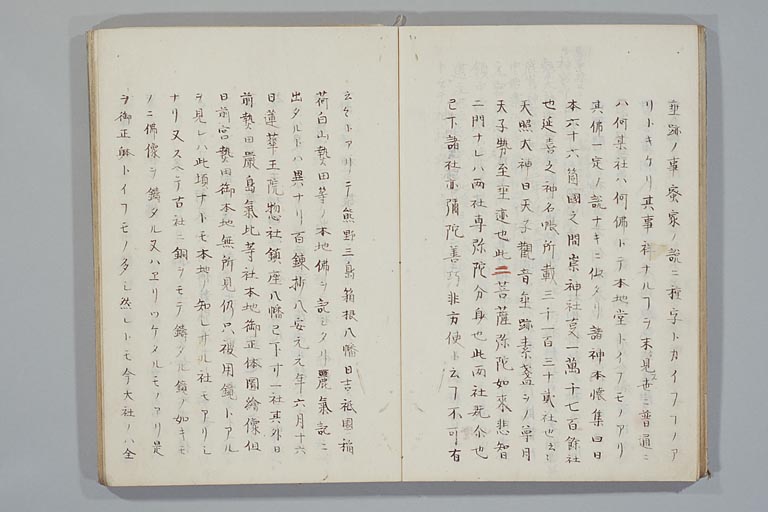 垂跡ノ事密家ノ説ニ種字トカイフフノア
リトキケリ其事祥ナルフヲ未見世ニ普通ニ
ハ何某社ハ何佛トテ本地堂トイフモノアリ
其佛一定ノ説ナキニ似タリ諸神本懐集曰日
本六十六箇國之間崇神社一萬千七百餘社
也延喜之神名帳所載三千一百三十二社也云々
天照大神日天子觀音垂跡素盞ヲノ尊月
天子勢至垂迹也此二菩薩弥陀如来悲智
二門ナレハ両社専弥陀分身也此両社既尒也
已下諸社亦彌陀善巧非方便ト云フ不可有
云々トアリテ熊野三島箱根八幡日吉祇園稲
荷白山熱田等ノ本地佛ヲ記セタリ麗氣記ニ
出タルトハ異ナリ百錬抄八安元元年六月十六
日蓮華王院惣社鎮座八幡已下廿一社其外日
前熱田嚴島氣比等社本地御正体圖繪像但
日前宮熱田御本地無所見仍只被用鏡トアル
ヲ見レハ此頃ナトモ本地ノ知レサル社モアリシ
ナリ又スヘテ古社ニ銅ヲモテ鑄タル鏡ノ如キモ
ノニ佛像ヲ鑄タル又ハヱリツケタルモノアリ是
ヲ御正躰トイフモノ多シ然レトモ今大社ノハ全